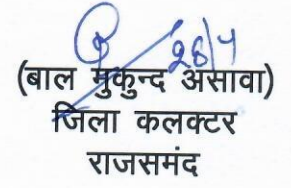 28/4
(बाल मुकुन्द असावा)
जिला कलक्टर
राजसमंद